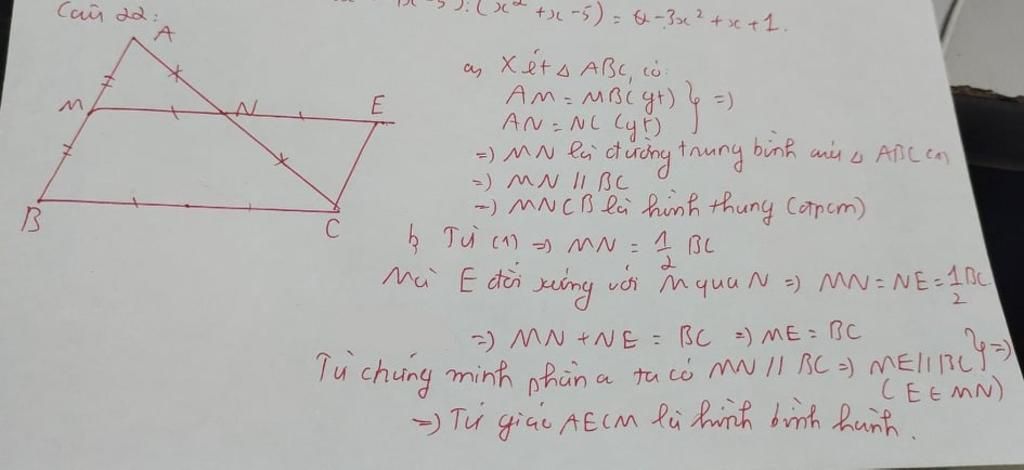 Câu 22:
: (x² + x - 5) = -3x² + x + 1.
A
M
N
E
B
C
a, Xét △ ABC, có:
AM = MB (gt) } =>
AN = NC (gt)
=> MN là đường trung bình của △ ABC (1)
=> MN // BC
=> MNCB là hình thang (đpcm)
b, Từ (1) => MN = 1/2 BC
Mà E đối xứng với M qua N => MN = NE = 1/2 BC
=> MN + NE = BC => ME = BC
Từ chứng minh phần a ta có MN // BC => ME // BC } =>
(E ∈ MN)
=> Tứ giác AECM là hình bình hành.